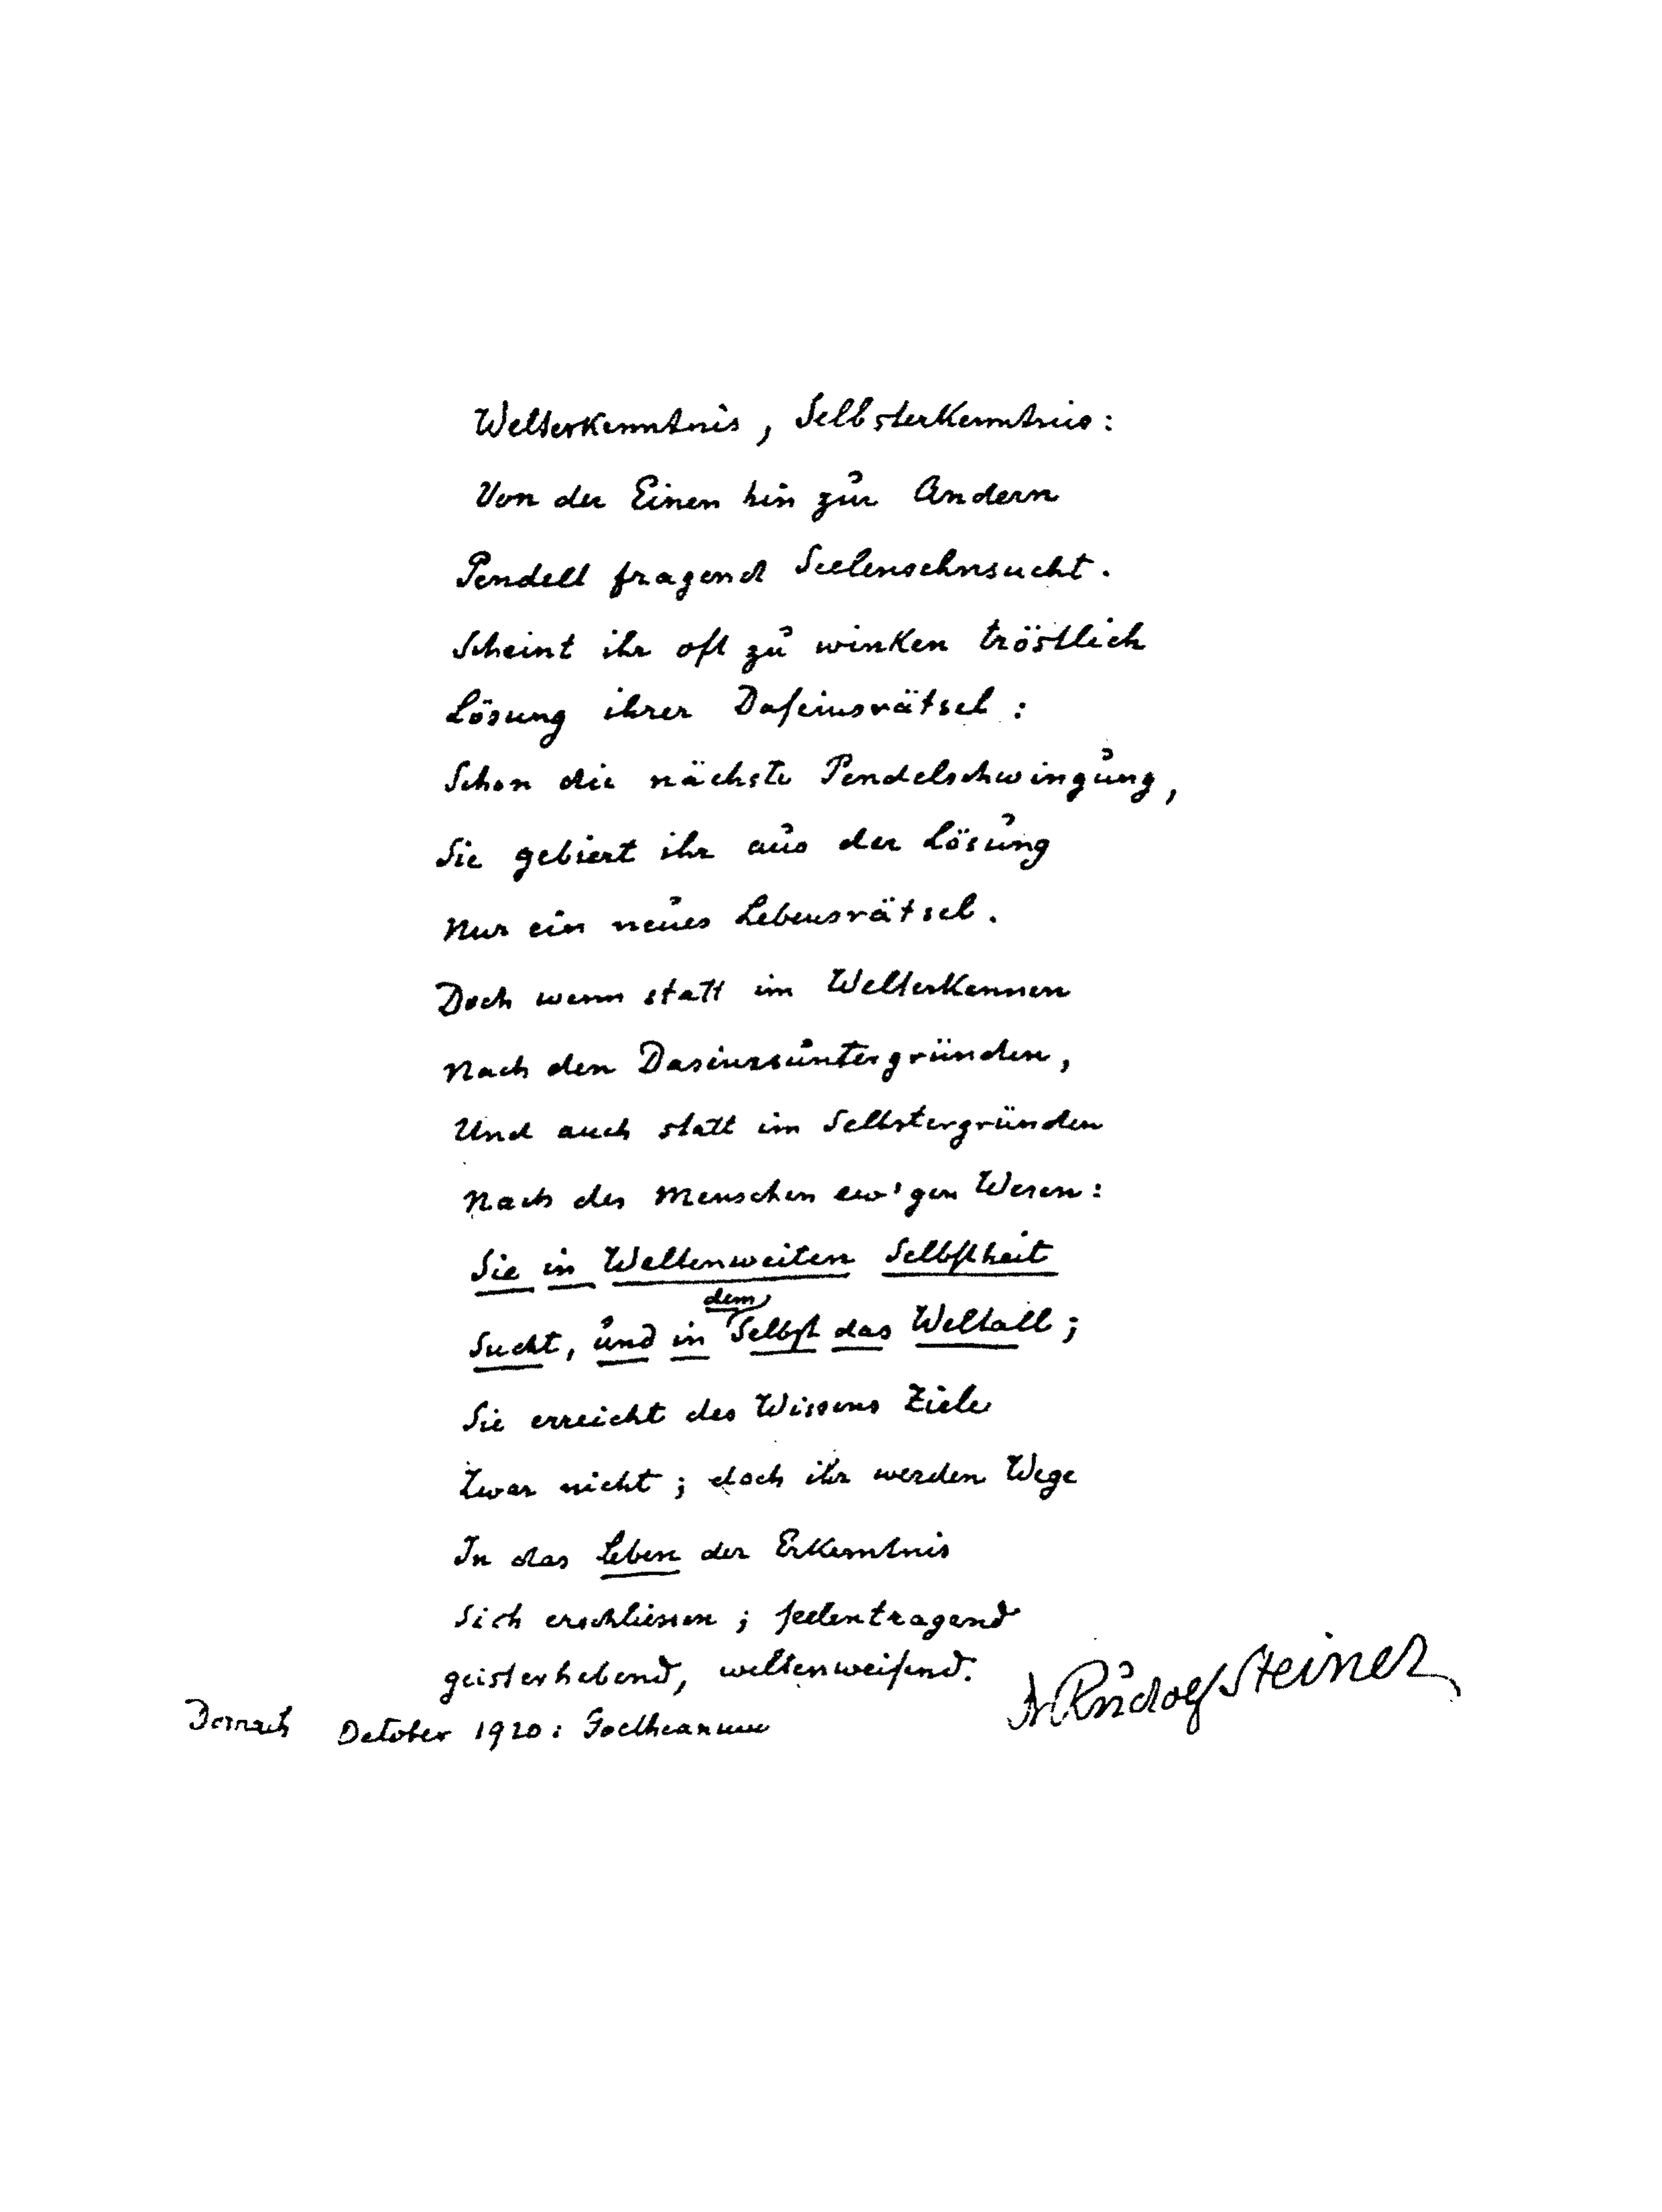 Welterkenntnis, Selbsterkenntnis:
Von der Einen hin zur Andern
Pendelt fragend Seelensehnsucht.
Scheint ihr oft zu winken tröstlich
Lösung ihrer Daseinsrätsel:
Schon die nächste Pendelschwingung,
Sie gebiert ihr aus der Lösung
Nur ein neues Lebensrätsel.
Doch wenn statt im Welterkennen
Nach den Daseinsuntergründen,
Und auch statt im Selbstergründen
Nach des Menschen ew'gen Wesen:
Sie in Weltenweiten Selbstheit
Sucht, und in dem Selbst das Weltall;
Sie erreicht des Wissens Ziele
Zwar nicht; doch ihr werden Wege
In das Leben der Erkenntnis
Sich erschliessen; seelentragend
geisterhebend, weltenweisend.
Dornach October 1920: Goetheanum
Dr Rudolf Steiner